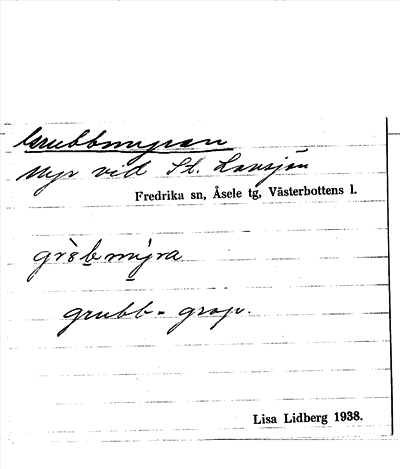 Grubbmyran
Myr vid St. Lavsjön
Fredrika sn, Åsele tg, Västerbottens l.
mýra
grubb = grop.
Lisa Lidberg 1938.